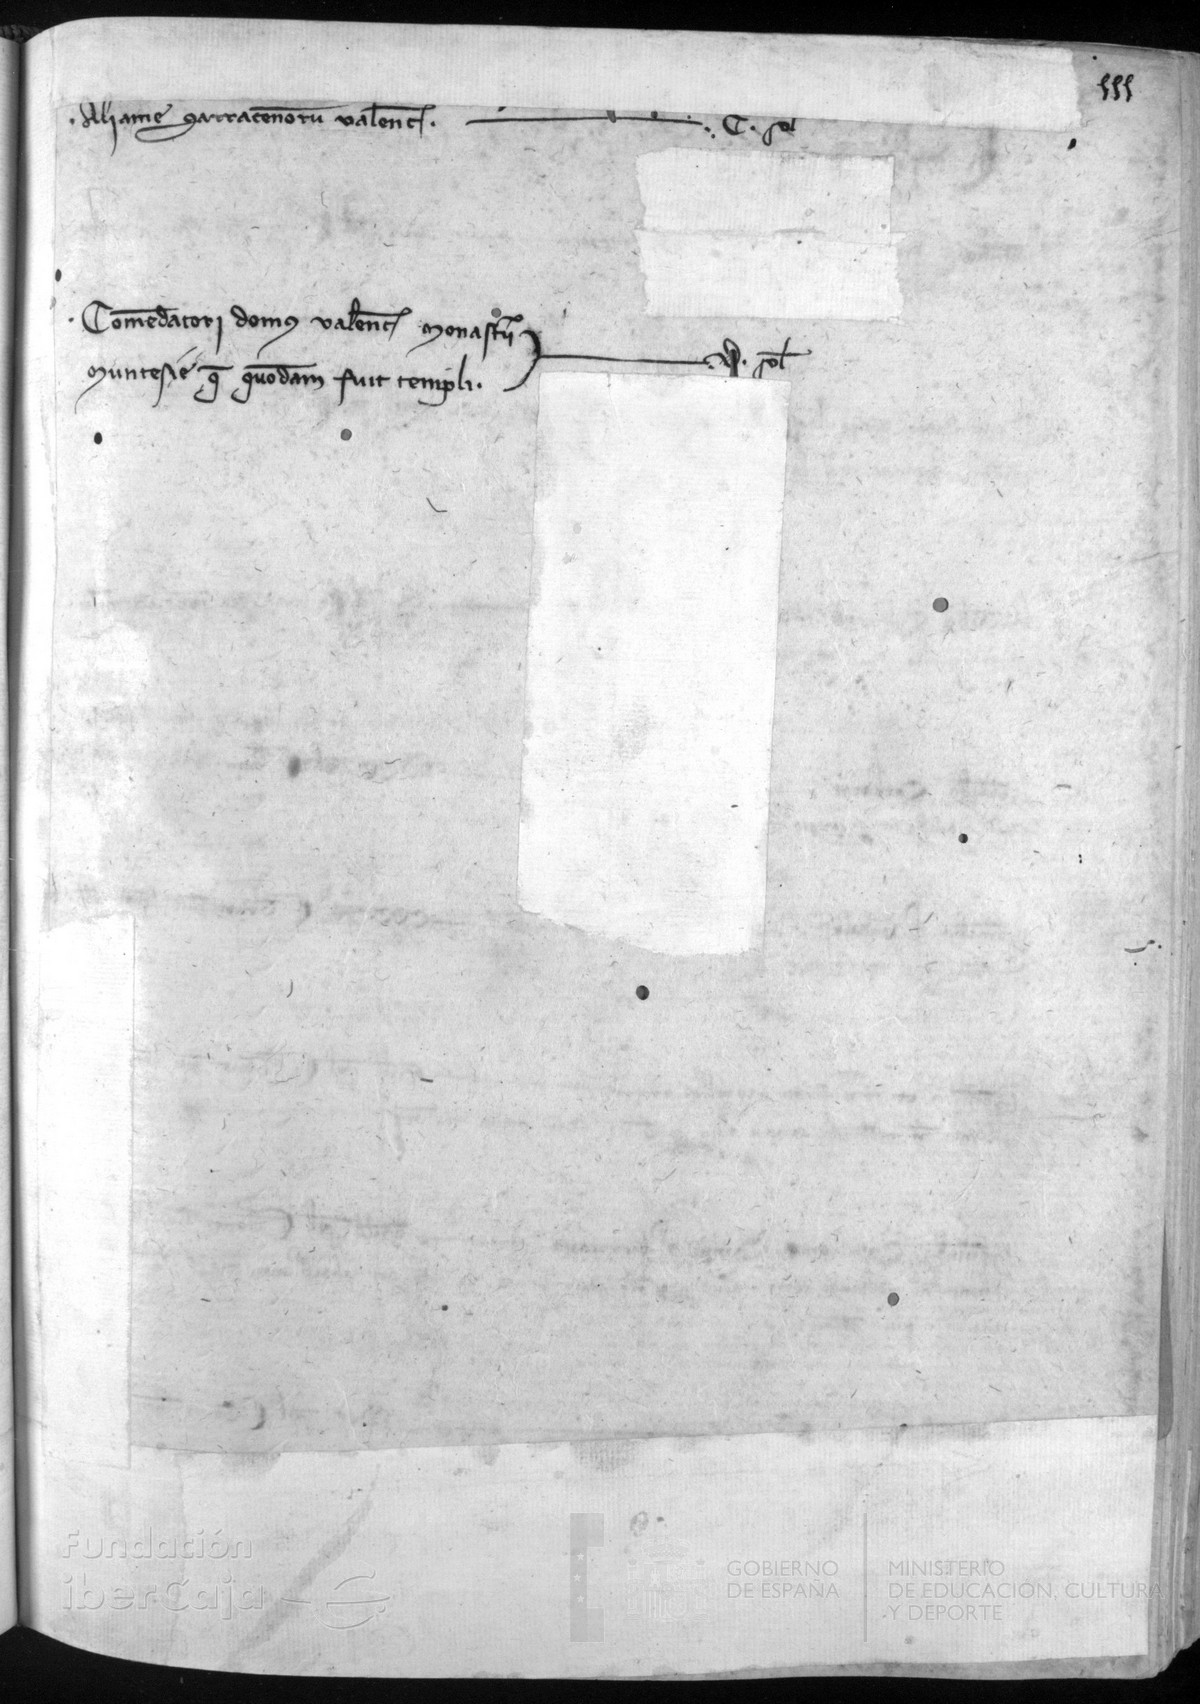 555
. Aliame sarracenorū valenc̄ . . C . sol
. Comēdatori domus valenc̄ monastīi
muntesie q̄ quōdam fuit templi . . D . sol
Fundación
iberCaja
GOBIERNO
DE ESPAÑA
MINISTERIO
DE EDUCACIÓN, CULTURA
Y DEPORTE